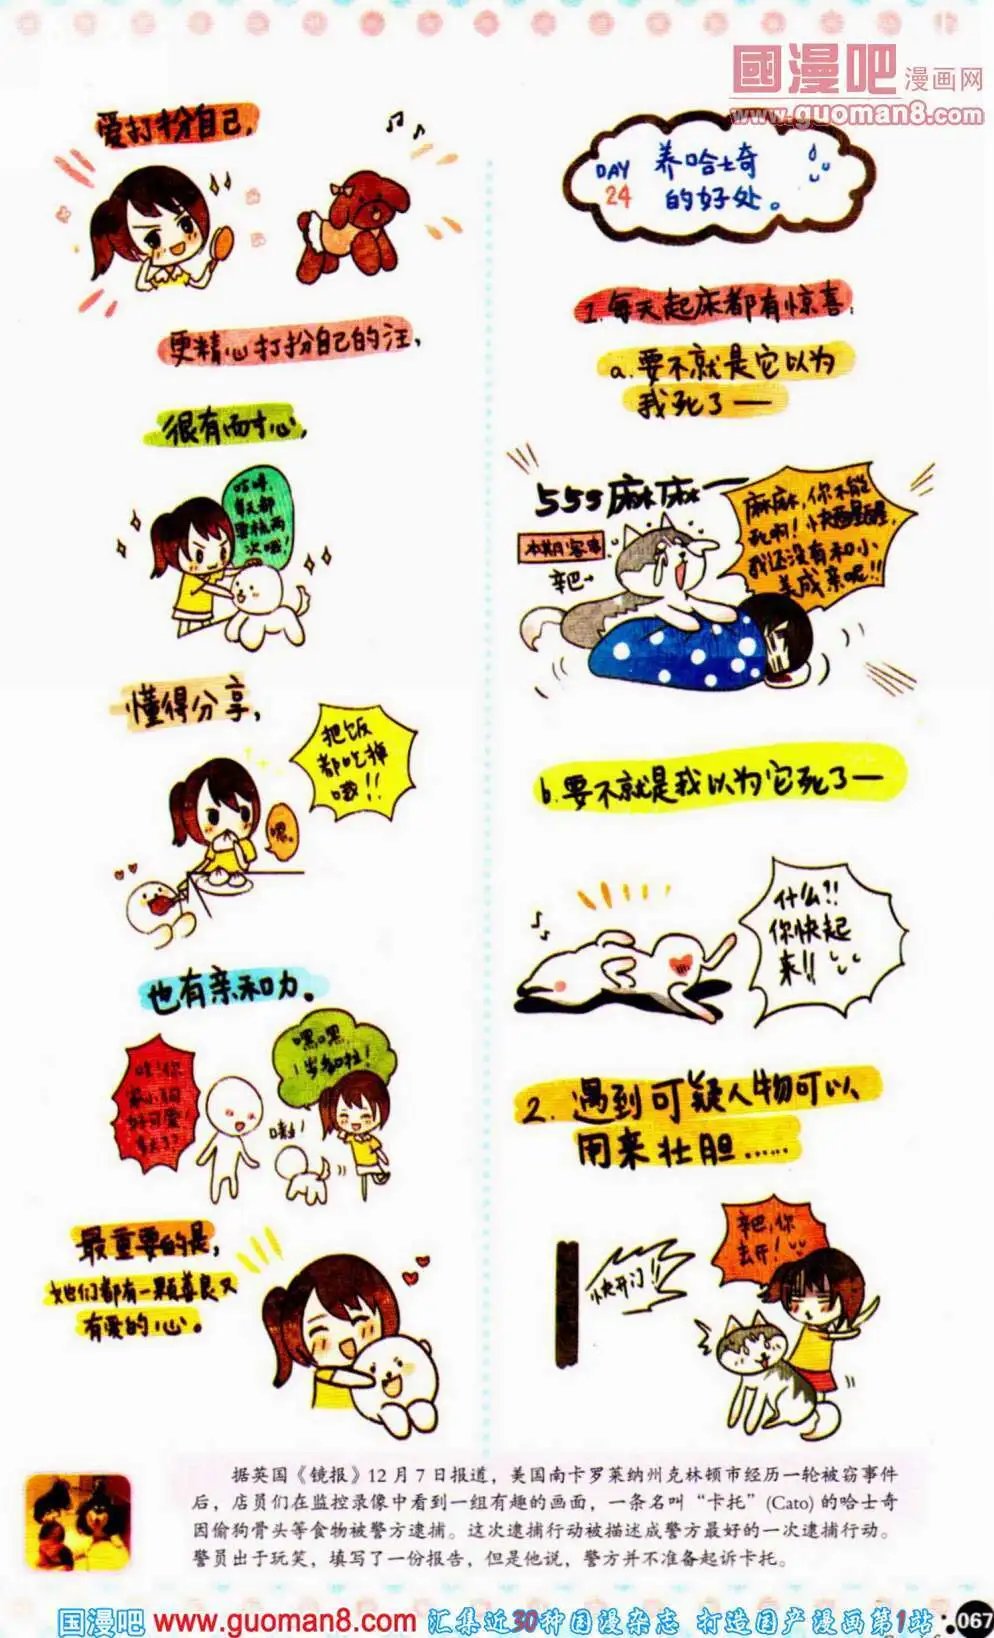 國漫吧 漫画网
www.guoman8.com
爱打扮自己,
更精心打扮自己的汪,
很有耐心,
每天都
要梳两
次哦!
懂得分享,
把饭
都吃掉
哦!!
嘿。
也有亲和力。
嘿嘿,
1岁都啦!
最重要的是,
她们都有一颗善良又
有爱的心。
DAY
24
养哈士奇
的好处。
1.每天起床都有惊喜:
a.要不就是它以为
我死了—
555麻麻—
本期客串
辛巴→
麻麻,你不能
死啊!快醒醒,
我还没有和小
美成亲呢!!
b.要不就是我以为它死了—
什么!!
你快起
来!!
2.遇到可疑人物可以
用来壮胆……
辛巴,你
去开!
快开门!
据英国《镜报》12月7日报道,美国南卡罗莱纳州克林顿市经历一轮被窃事件
后,店员们在监控录像中看到一组有趣的画面,一条名叫“卡托”(Cato)的哈士奇
因偷狗骨头等食物被警方逮捕。这次逮捕行动被描述成警方最好的一次逮捕行动。
警员出于玩笑,填写了一份报告,但是他说,警方并不准备起诉卡托。
国漫吧 www.guoman8.com 汇集近30种国漫杂志 打造国产漫画第1站
067